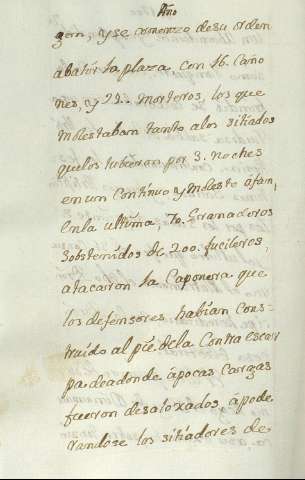 Año
gen, y se comenzo de su orden
abatir la plaza con 16. Caño
nes, y 22. morteros, los que
molestaban tanto alos sitiados
quelos tubieron por 3. noches
enun continuo y molesto afan,
Enla ultima, 70. Granaderos
sostenidos de 200. fucileros,
atacaron la Caponera que
los defensores, habían Cons=
truido al píe dela Contra escar
pa deadonde ápocas Cargas
fueron desaloxados, apode
randose los sitiadores de